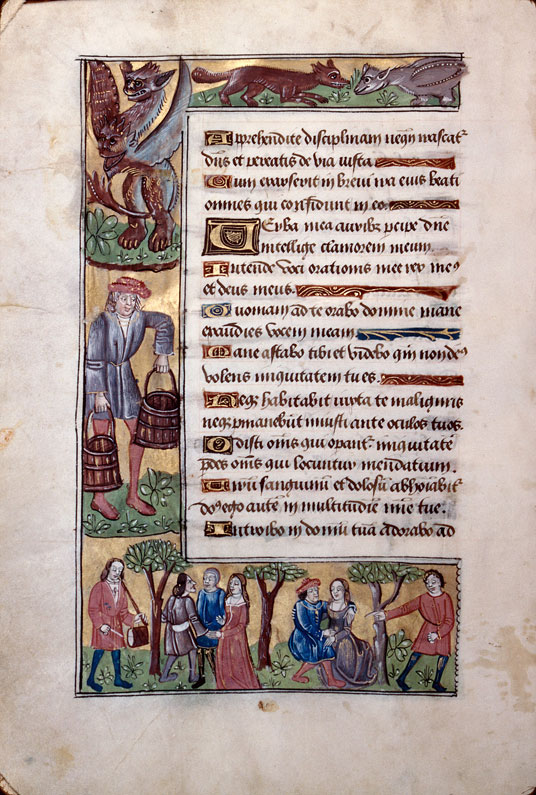 Apprehendite disciplinam neqn̄ irascat᷑
dn̄s et pereatis de via iusta
Cum exarserit in brevi ira eius beati
omnes qui confidunt in eo
Verba mea auribꝫ ꝑcipe dn̄e
intellige clamorem meum
Intende voci orationis mee rex meꝰ
et deus meus.
Quoniam ad te orabo domine mane
exaudies vocem meam
Mane astabo tibi et videbo qm̄ non deꝰ
volens iniquitatem tu es.
Neqꝫ habitabit iuxta te malignus
neqꝫ ꝑmanebūt iniusti ante oculos tuos.
Odisti om̄is qui oꝑant᷑ iniquitatē
ꝑdes om̄is qui locuntur mendatium.
Virū sanguinū et dolosū abhoīabit᷑
doꝰ ego autē in multitudīe mīe tue.
Introibo in domū tuā adorabo ad